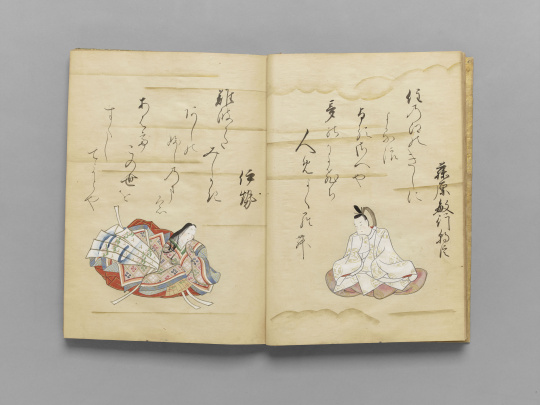 藤原敏行朝臣
住乃江のきしに
よる波
よるさへや
夢のかよひ路
人めよくらむ
伊勢
難波かたみしかき
あしの
ふしのまも
あはてこの世を
すくし
てよとや